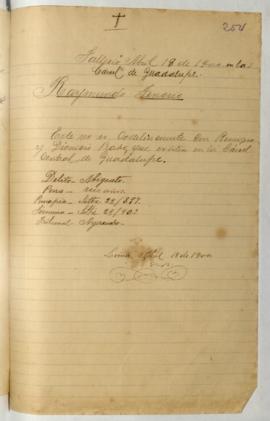 254
Falleció Abril 18 de 1900 en la
Carcl de Guadalupe.
Raymundo
Este no es Codelincuente con Remigio
y Dionicio que existen en la Cárcel
Central de Guadalupe.
Delito - Abigeato
Pena -
Principia - Stbre 22/89
Termina - Stbre 22/90
Tribunal Ayacucho
Lima, Abril 18 de 1900